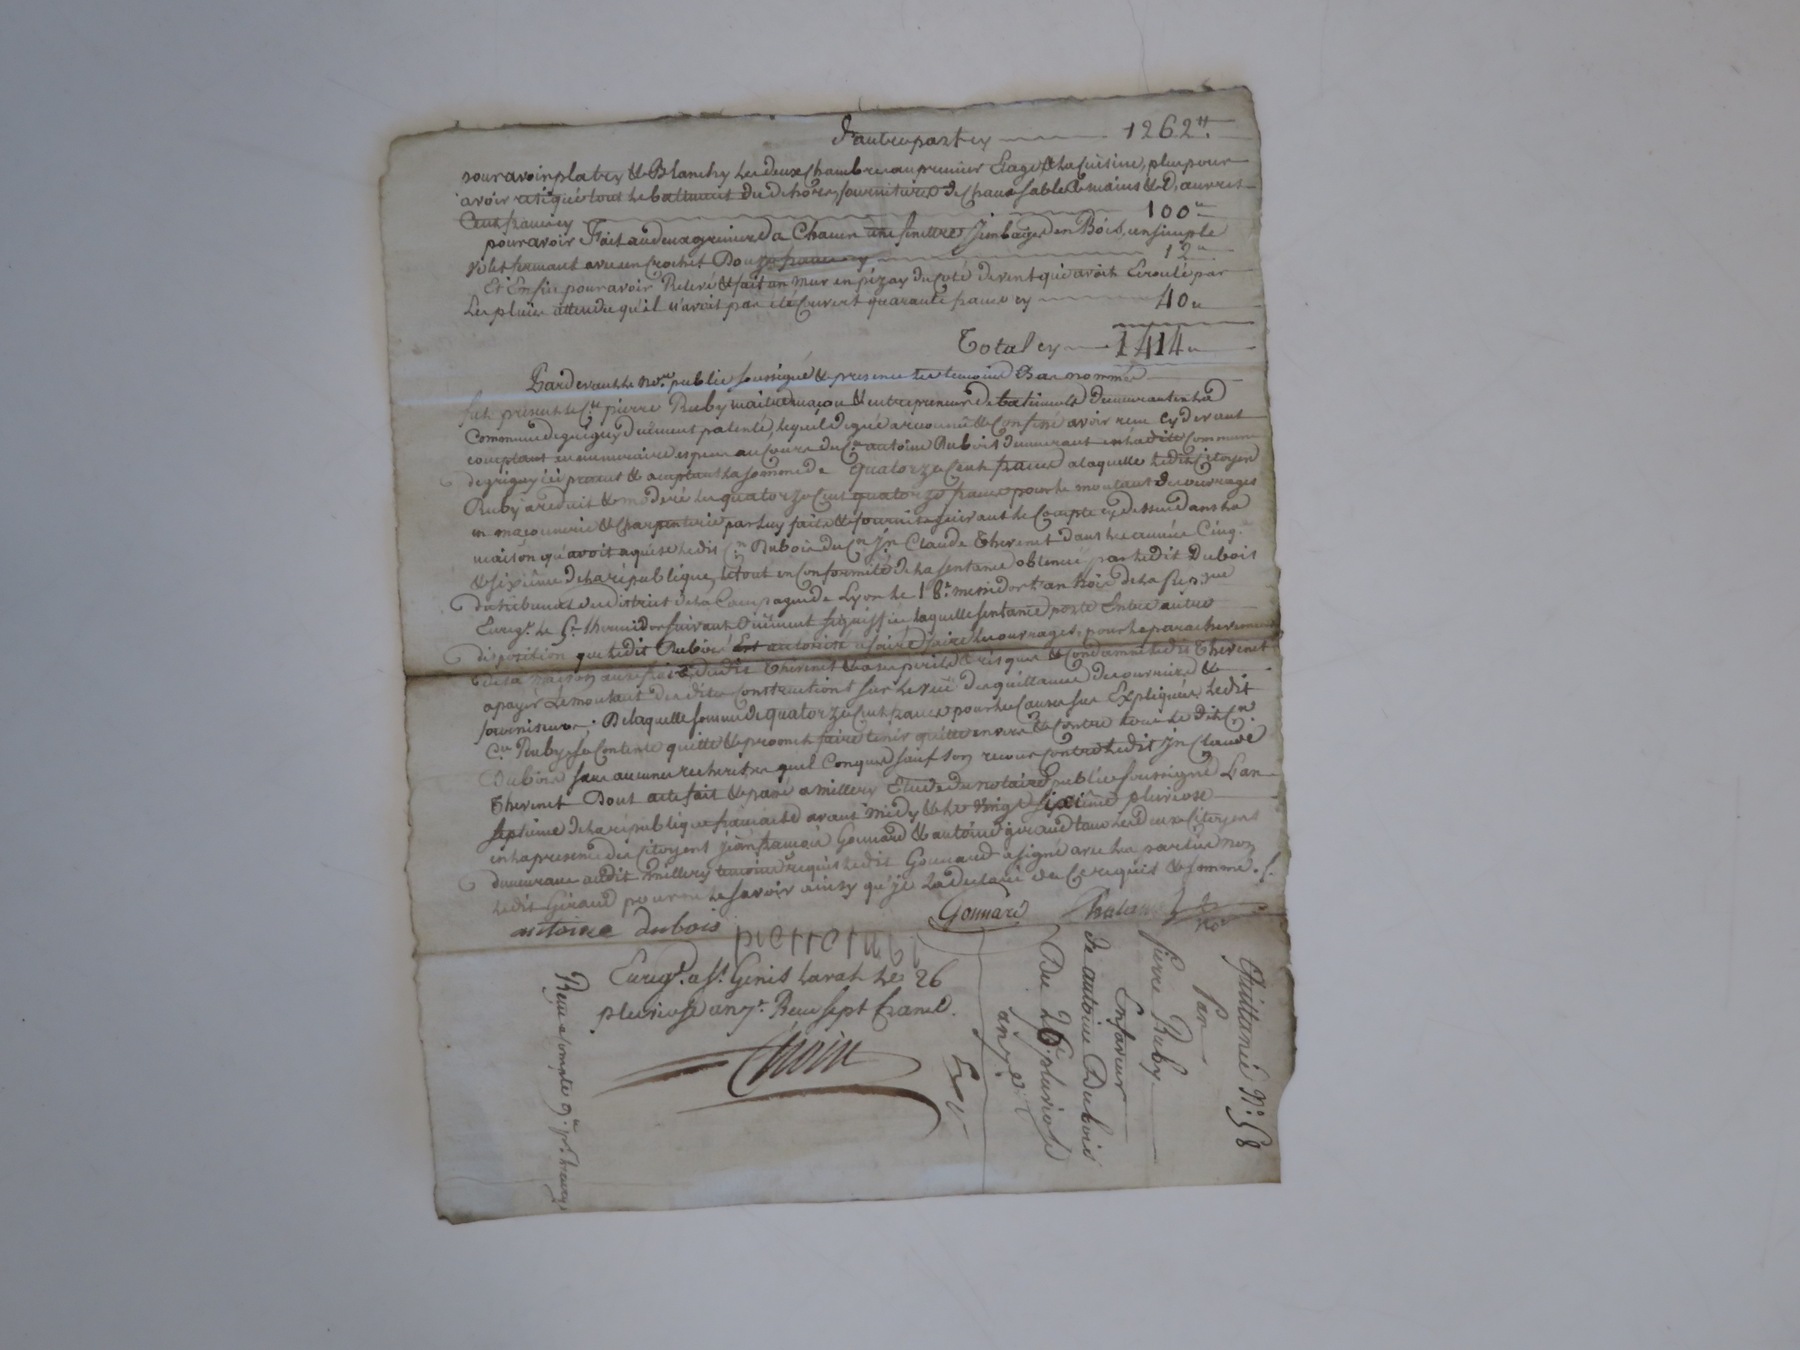 d'autrepart cy 1262  tt
pour avoir platry & Blanchy les deux chambres au premier Etage & la Cuisine, plus pour
avoir crépiqué tout le batiment du dehors, fournitures de chaux sable & mains & D'œuvres
Cent francs cy 100 "
pour avoir Fait aux deux greniers a Chacun une fenêtre, en Bois, un simple
volet fermant avec un Crochet Douze francs cy 12 "
Et Enfin pour avoir Relevé & fait un mur en pizay du coté de vent qui avoit Ecroulé par
Les pluies attendu qu'il n'avoit pas été Couvert quarante francs cy 40 "
Total cy 1414 "
Pardevant le no.re public soussigné & presence des temoins Bas nommés
fut présent le C.en pierre Ruby maitre maçon & entrepreneur de batiments demeurant en la
Commune de grigny duement patenté, lequel de gré a reconnu & Confessé avoir reçu cy devant
comptant en numeraire au Cours du C.n antoine Dubois demeurant en la dite Commune
de grigny ici présent & acceptant la somme de quatorze Cent francs a laquelle ledit Citoyen
Ruby a reduit & moderé les quatorze Cent quatorze francs pour le montant des ouvrages
en maçonnerie & Charpenterie par luy faits & fournis suivant le Compte cy dessus dans la
maison qu'avoit aquise ledit C.n Dubois du C.n Jn Claude Thevenet dans les années Cinq.e
& sixième de la république, le tout en Conformité de la sentence obtenue par ledit Dubois
du tribunal du district de la Campagne de Lyon le 18.e messidor l'an trois de la Rep.que
Enreg.é le thermidor suivant Duëment signiffiée laquelle sentence porte Entre autre
disposition que ledit Dubois Est autorisé a faire faire les ouvrages, pour le parachevement
de la maison aux frais dudit Thevenet & a ses perils & risques & Condamne ledit Thevenet
a payer Le montant des dites Constructions sur le vû des quittances des ouvriers &
fournisseurs; De laquelle somme de quatorze Cent francs pour les Causes sus Expliquées ledit
C.en Ruby se Contente quitte & promet faire tenir quitte envers & Contre tous le dit C.n
Dubois sans aucunes recherches quel Conques sauf son recour Contre ledit Jn Claude
Thevenet Dont acte fait & passé a millery Etude du notaire public soussigné L'an
septième de la république française avant midy & le vingt sixième pluviose
en la presence des Citoyens jean françois Gonnard & antoine giraud tous les deux Citoyens
demeurans audit millery temoins requis ledit Gonnard a signé avec les parties non
ledit Giraud pour ne le savoir ainsy qu'il l'a déclaré de Ce requis & sommé.
antoine dubois pierre rubi Gonnard
no.re
Enreg.é a S.t Genis Laval le 26
pluviose an 7.e Reçu sept francs.
Quittance N.o 58
Par
Pierre Ruby
En faveur
de antoine Dubois
Du 26 pluviose
an 7.e